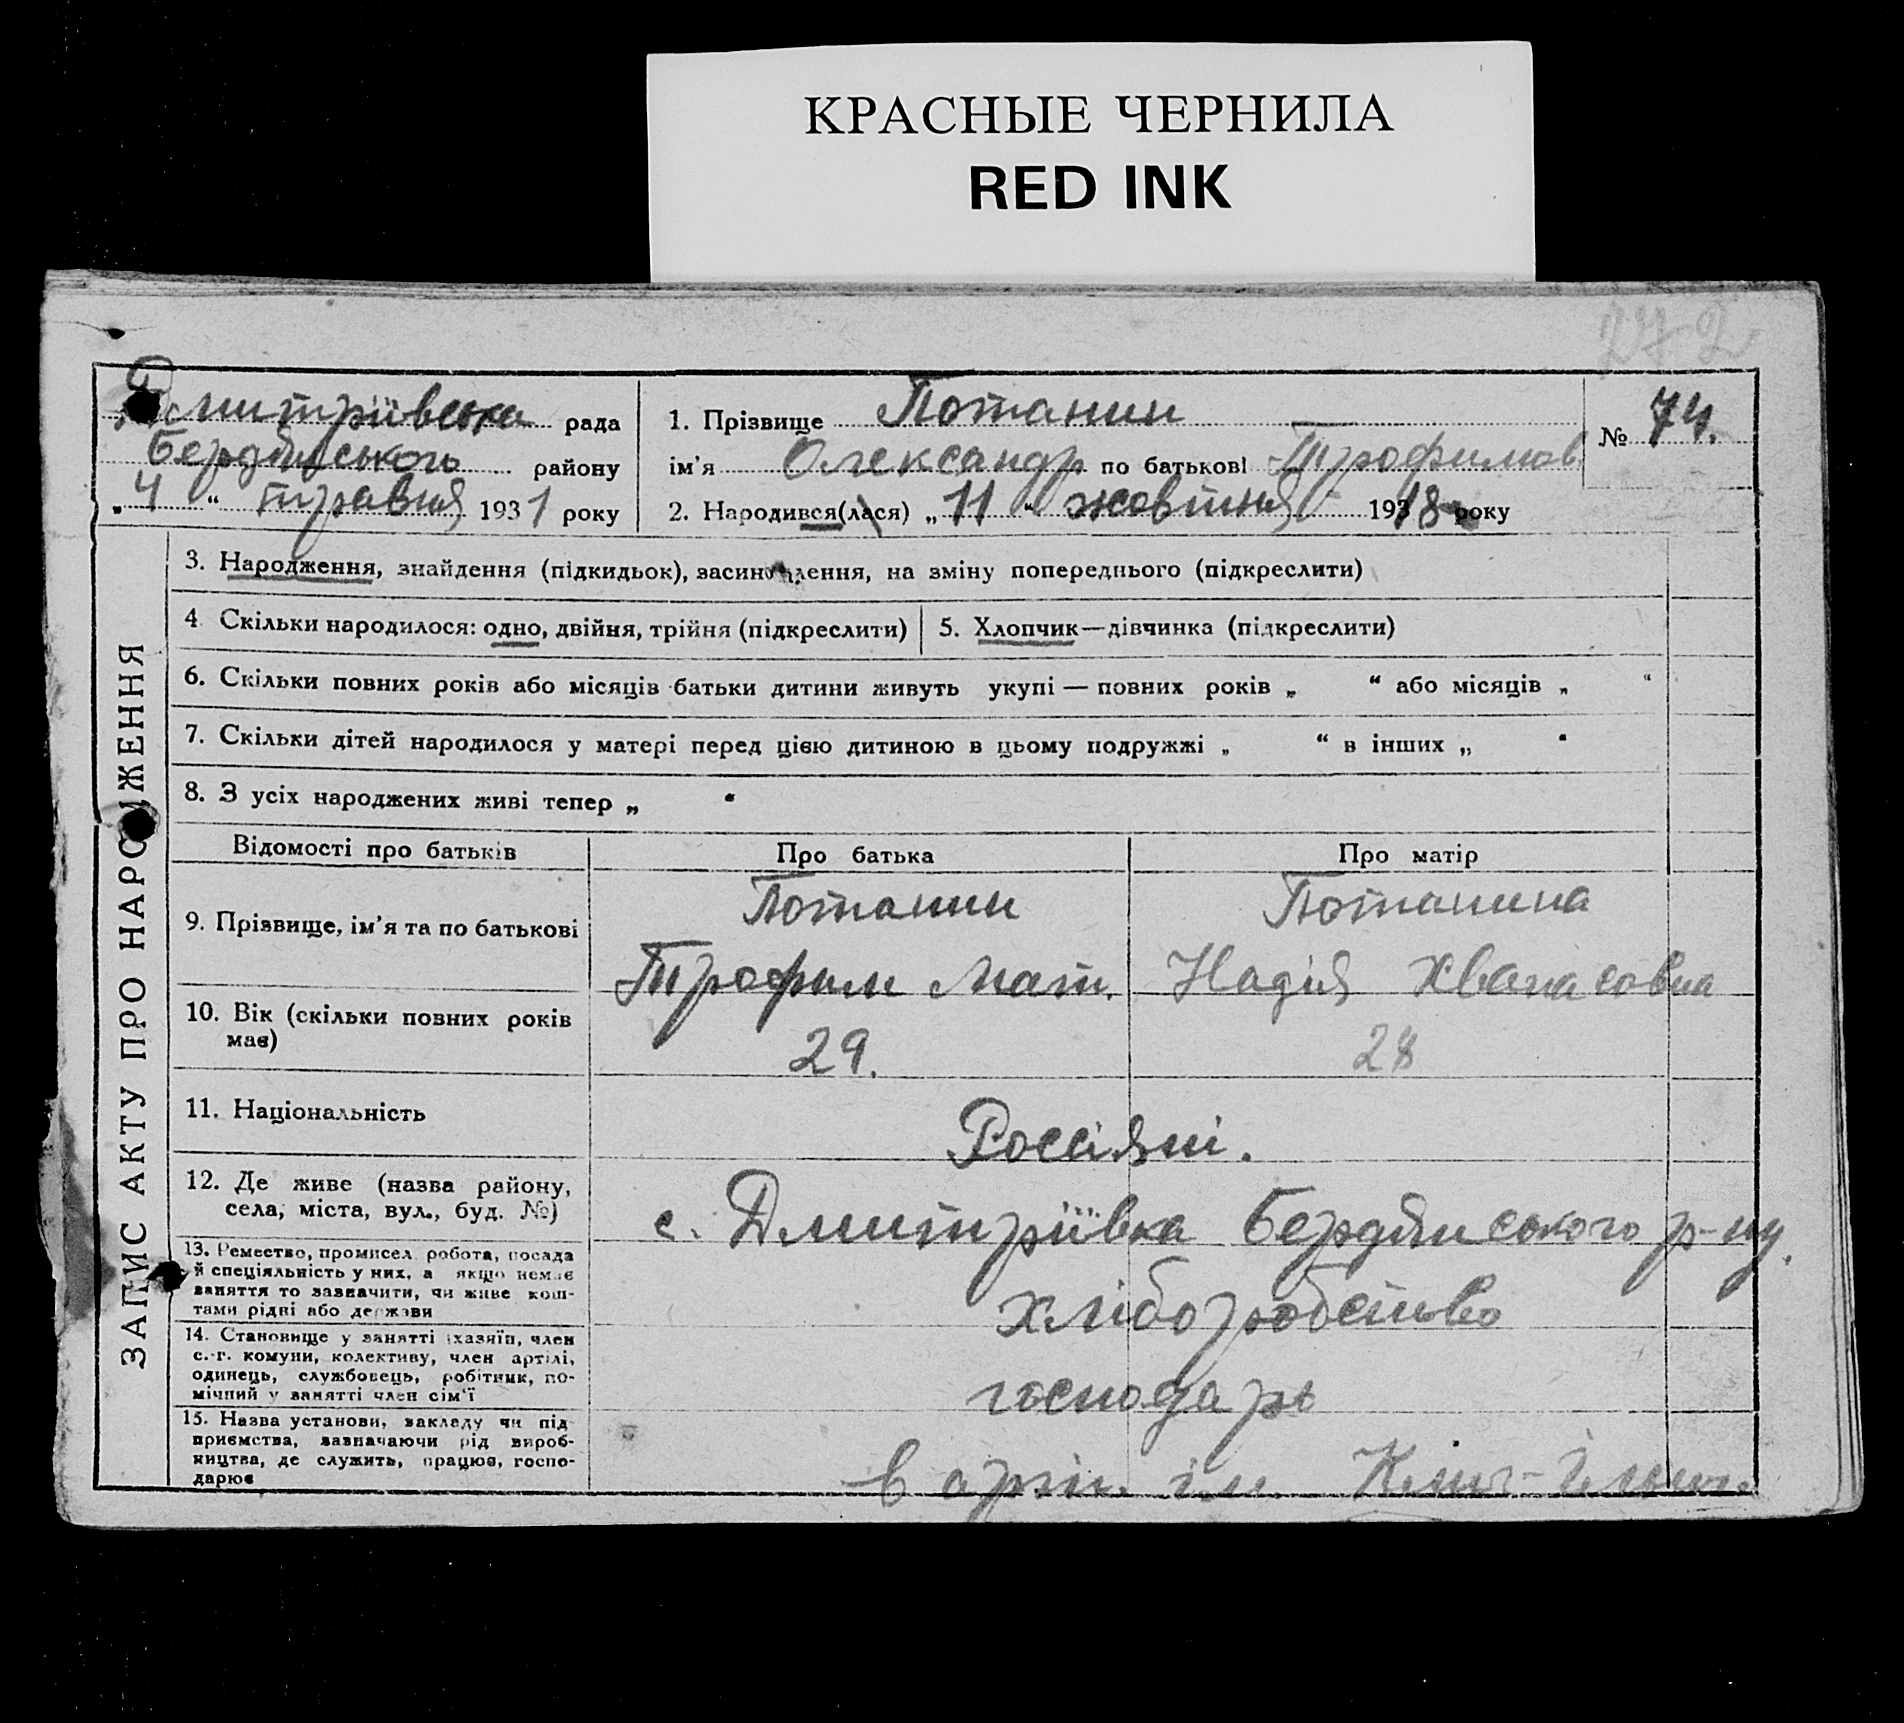 КРАСНЫЕ ЧЕРНИЛА
RED INK
272
Дмитріївська рада
Бердянського району
„ 4 “ травня 1931 року
1. Прізвище Потанин
ім'я Олександр по батькові Трофимов.
2. Народився(лася) „ 11 “ жовтня 1918 року
№ 74.
ЗАПИС АКТУ ПРО НАРОДЖЕННЯ
3. Народження, знайдення (підкидьок), засиновлення, на зміну попереднього (підкреслити)
4 Скільки народилося: одно, двійня, трійня (підкреслити)
5. Хлопчик—дівчинка (підкреслити)
6. Скільки повних років або місяців батьки дитини живуть укупі — повних років „ “ або місяців „ “
7. Скільки дітей народилося у матері перед цією дитиною в цьому подружжі „ “ в інших „ “
8. З усіх народжених живі тепер „ “
Відомості про батьків
Про батька
Про матір
9. Прізвище, ім'я та по батькові
Потанин
Трофим Мат.
Потанина
Надія Хванасовна
10. Вік (скільки повних років
має)
29.
28
11. Національність
Россіяні.
12. Де живе (назва району,
села, міста, вул., буд. №)
с. Дмитріївка Бердянського р-ну.
13. Ремество, промисел, робота, посада
й спеціяльність у них, а якщо немає
заняття то зазначити, чи живе кош-
тами рідні або держави
хліборобство
14. Становище у занятті (хазяїн, член
с.-г. комуни, колективу, член артілі,
одинець, службовець, робітник, по-
мічний у занятті член сім'ї
господарь
15. Назва установи, закладу чи під-
приємства, зазначаючи рід вироб-
ництва, де служить, працює, госпо-
дарює
в артіл. ім.